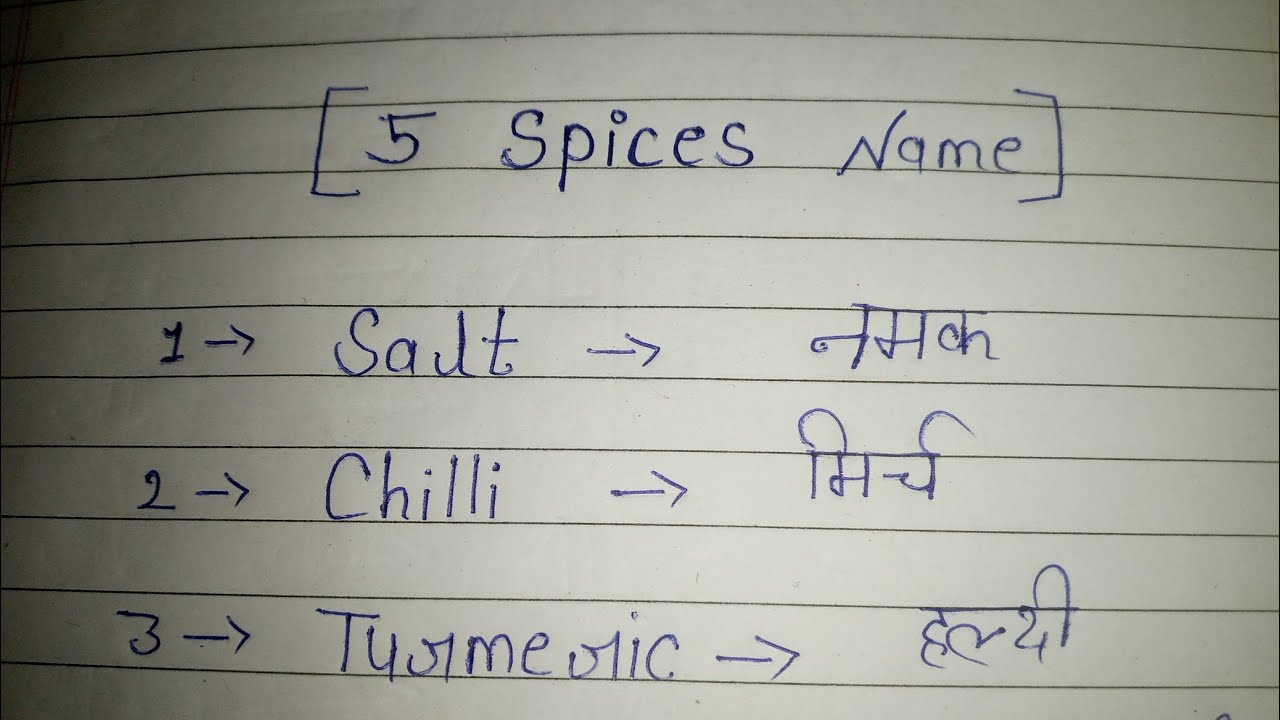 [5 Spices Name]
1 → Salt → नमक
2 → Chilli → मिर्च
3 → Turmeric → हल्दी